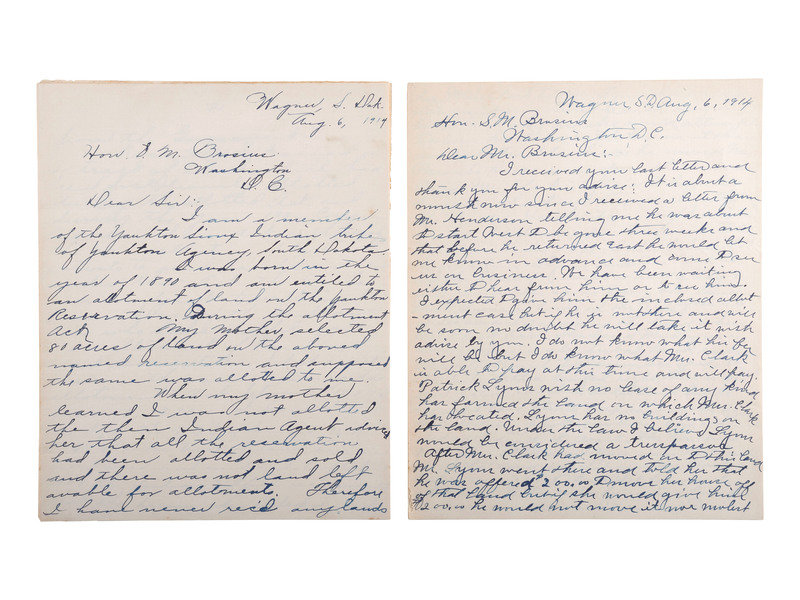 Wagner, S. Dak.
Aug. 6, 1914
Hon. S. M. Brosius
Washington
D. C.
Dear Sir:
I am a member
of the Yankton Sioux Indian tribe
of Yankton Agency, South Dakota.
I was born in the
year of 1890 and am entitled to
an allotment of land on the Yankton
Reservation. During the allotment
Act, My Mother, selected
80 acres of land on the above
named reservation and supposed
the same was allotted to me.
When my mother
learned I was not allotted
the then Indian Agent advised
her that all the reservation
had been allotted and sold
and there was not land left
avable for allotments. Therefore
I have never recd any lands
Wagner, S.D. Aug. 6, 1914
Hon. S. M. Brosius
Washington, D. C.
Dear Mr. Brosius:-
I received your last letter and
thank you for your advise: It is about a
month now since I received a letter from
Mr. Henderson telling me he was about
to start West to be gone three weeks and
that before he returned east he would let
me know in advance and come to see
us on business. We have been waiting
either to hear from him or to see him.
I expected to give him the inclosed allot
-ment case but if he is not there and will
be soon no doubt he will take it with
advise by you. I do not know what his fee
will be but I do know what Mrs. Clark
is able to pay at this time and will pay.
Patrick Lynn with no lease of any kind
has farmed the land on which Mrs. Clark
has located. Lynn has no buildings on
the land. Under the law I believe Lynn
would be considered a trespasser.
After Mrs. Clark had moved on to this land
Mr. Lynn went there and told her that
he was offered $200.00 to move her house off
of that land but if she would give him
$200.00 he would not move it nor molest